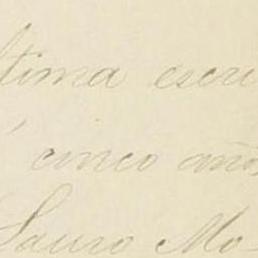 ltima escri
cinco años
Lauro Mo-